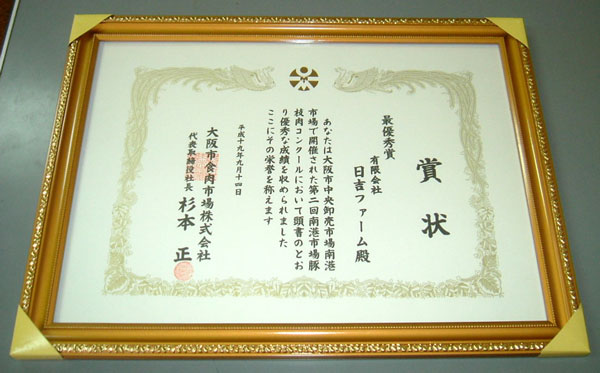 賞状
最優秀賞
有限会社
日吉ファーム殿
あなたは大阪市中央卸売市場南港
市場で開催された第二回南港市場豚
枝肉コンクールにおいて頭書のとお
り優秀な成績を収められました
ここにその栄誉を称えます
平成十九年九月十四日
大阪市食肉市場株式会社
代表取締役社長 杉本 正